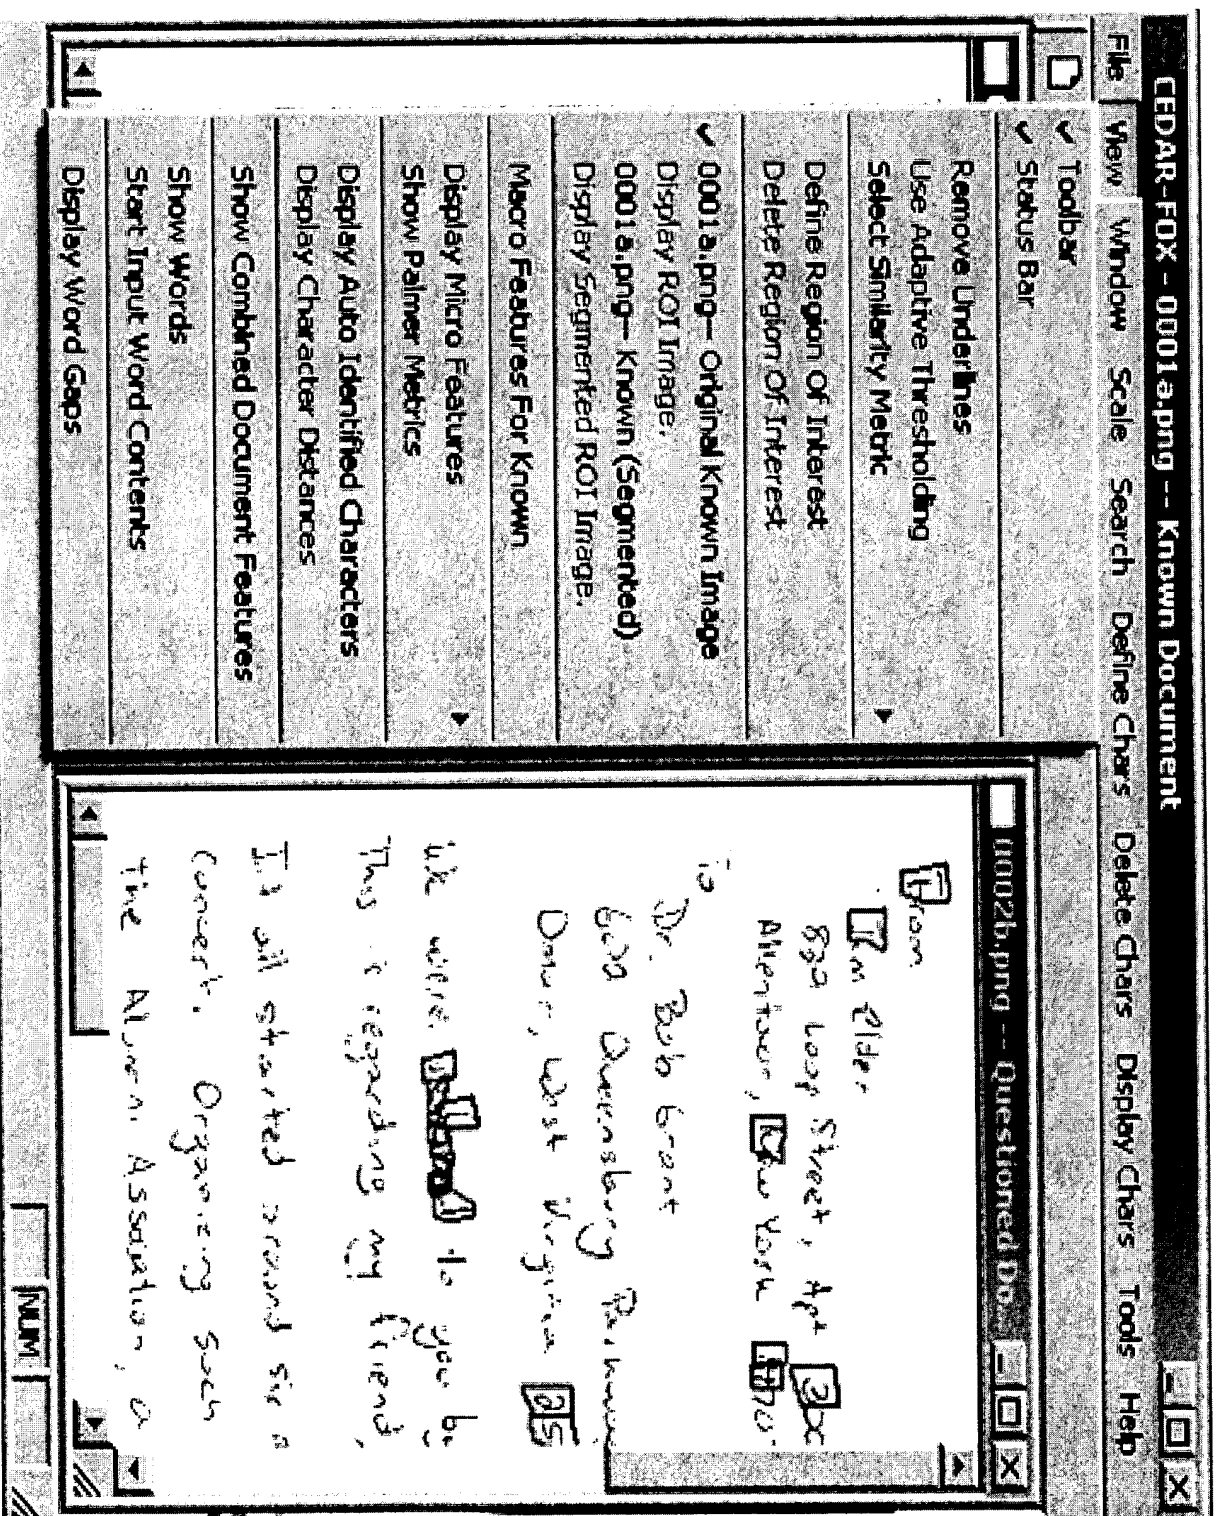 CEDAR-FOX - 0001a.png -- Known Document
File View Window Scale Search Define Chars Delete Chars Display Chars Tools Help
✓ Toolbar
✓ Status Bar
Remove Underlines
Use Adaptive Thresholding
Select Similarity Metric
Define Region Of Interest
Delete Region Of Interest
✓ 0001a.png-- Original Known Image
Display ROI Image.
0001a.png-- Known (Segmented)
Display Segmented ROI Image.
Macro Features For Known
Display Micro Features
Show Palmer Metrics
Display Auto Identified Characters
Display Character Distances
Show Combined Document Features
Show Words
Start Input Word Contents
Display Word Gaps
0002b.png -- Questioned Do...
From
Jim Elder
829 Loop Street, Apt 3
Allentown, New York
To
Dr. Bob Grant
602 Queensbury
Omar, West Virginia 25
We were to you
This is regarding my friend,
It all started around six
Concert. Organizing such
the Alumni Association, a
NUM